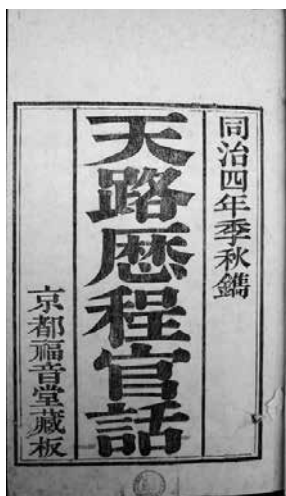 同治四年季秋鐫
天路歷程官話
京都福音堂藏板